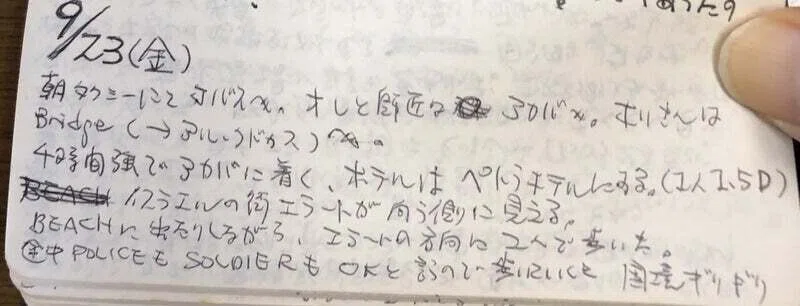 9/23(金)
朝タクシーにて タバスへ。オレと師匠は アカバへ。ホリさんは
Bridge (→アルードガス)へ。
4時間強でアカバに着く、ホテルは ペトラホテルにする。(1人1.5D)
BEACH イスラエルの街エラートが向う側に見える。
BEACHに出たりしながら、エラートの方向に2人で歩いた。
途中POLICEも SOLDIERも OKと言うので歩いていくと 国境ギリギリ